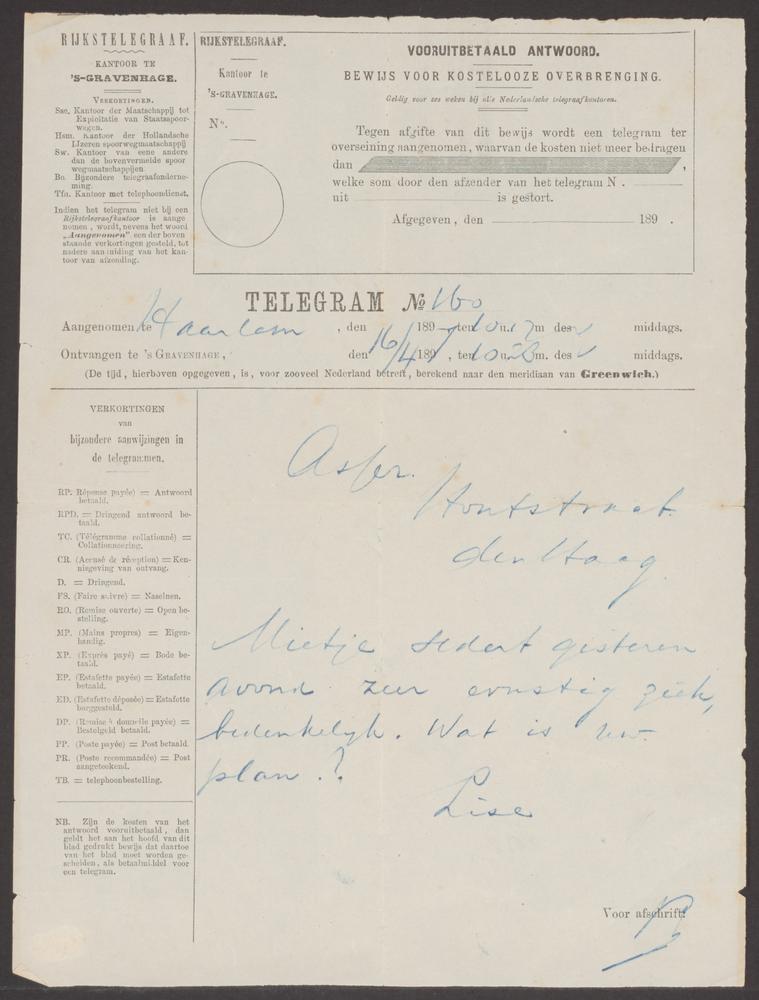 RIJKSTELEGRAAF.
KANTOOR TE
'S-GRAVENHAGE.
VERKORTINGEN.
Sse. Kantoor der Maatschappij tot
Exploitatie van Staatsspoor-
wegen.
Hsm. Kantoor der Hollandsche
IJzeren spoorwegmaatschappij
Sw. Kantoor van eene andere
dan de bovenvermelde spoor
wegmaatschappijen
Bo. Bijzondere telegraafonderne-
ming.
Tfn. Kantoor met telephoondienst.
Indien het telegram niet bij een
Rijkstelegraafkantoor is aange
nomen, wordt, nevens het woord
„Aangenomen" een der boven
staande verkortingen gesteld, tot
nadere aanduiding van het kan-
toor van afzending.
RIJKSTELEGRAAF.
Kantoor te
'S-GRAVENHAGE.
No.
VOORUITBETAALD ANTWOORD.
BEWIJS VOOR KOSTELOOZE OVERBRENGING.
Geldig voor zes weken bij alle Nederlandsche telegraafkantoren.
Tegen afgifte van dit bewijs wordt een telegram ter
overseining aangenomen, waarvan de kosten niet meer bedragen
dan ,
welke som door den afzender van het telegram N .
uit is gestort.
Afgegeven, den 189 .
TELEGRAM No 160
Aangenomen te Haarlem , den 189 ten 10 u. m des middags.
Ontvangen te 's GRAVENHAGE, den 16/4 189 , ten 10 u. m. des middags.
(De tijd, hierboven opgegeven, is, voor zooveel Nederland betreft, berekend naar den meridiaan van Greenwich.)
VERKORTINGEN
van
bijzondere aanwijzingen in
de telegrammen.
RP. Réponse payée) = Antwoord
betaald.
RPD. = Dringend antwoord be-
taald.
TC. (Télégramme collationné) =
Collationneering.
CR. (Accusé de réception) = Ken-
nisgeving van ontvang.
D. = Dringend.
FS. (Faire suivre) = Naseinen.
RO. (Remise ouverte) = Open be-
stelling.
MP. (Mains propres) = Eigen-
handig.
XP. (Exprès payé) = Bode be-
taald.
EP. (Estafette payée) = Estafette
betaald.
ED. (Estafette déposée) = Estafette
borggesteld.
DP. (Remise à domicile payée) =
Bestelgeld betaald.
PP. (Poste payée) = Post betaald.
PR. (Poste recommandée) = Post
aangeteekend.
TB. = telephoonbestelling.
NB. Zijn de kosten van het
antwoord vooruitbetaald, dan
geldt het aan het hoofd van dit
blad gedrukt bewijs dat daartoe
van het blad moet worden ge-
scheiden, als betaalmiddel voor
een telegram.
Asser.
Houtstraat.
den Haag
Mietje sedert gisteren
avond zeer ernstig ziek,
bedenkelijk. Wat is uw
plan.?
Lise
Voor afschrift: